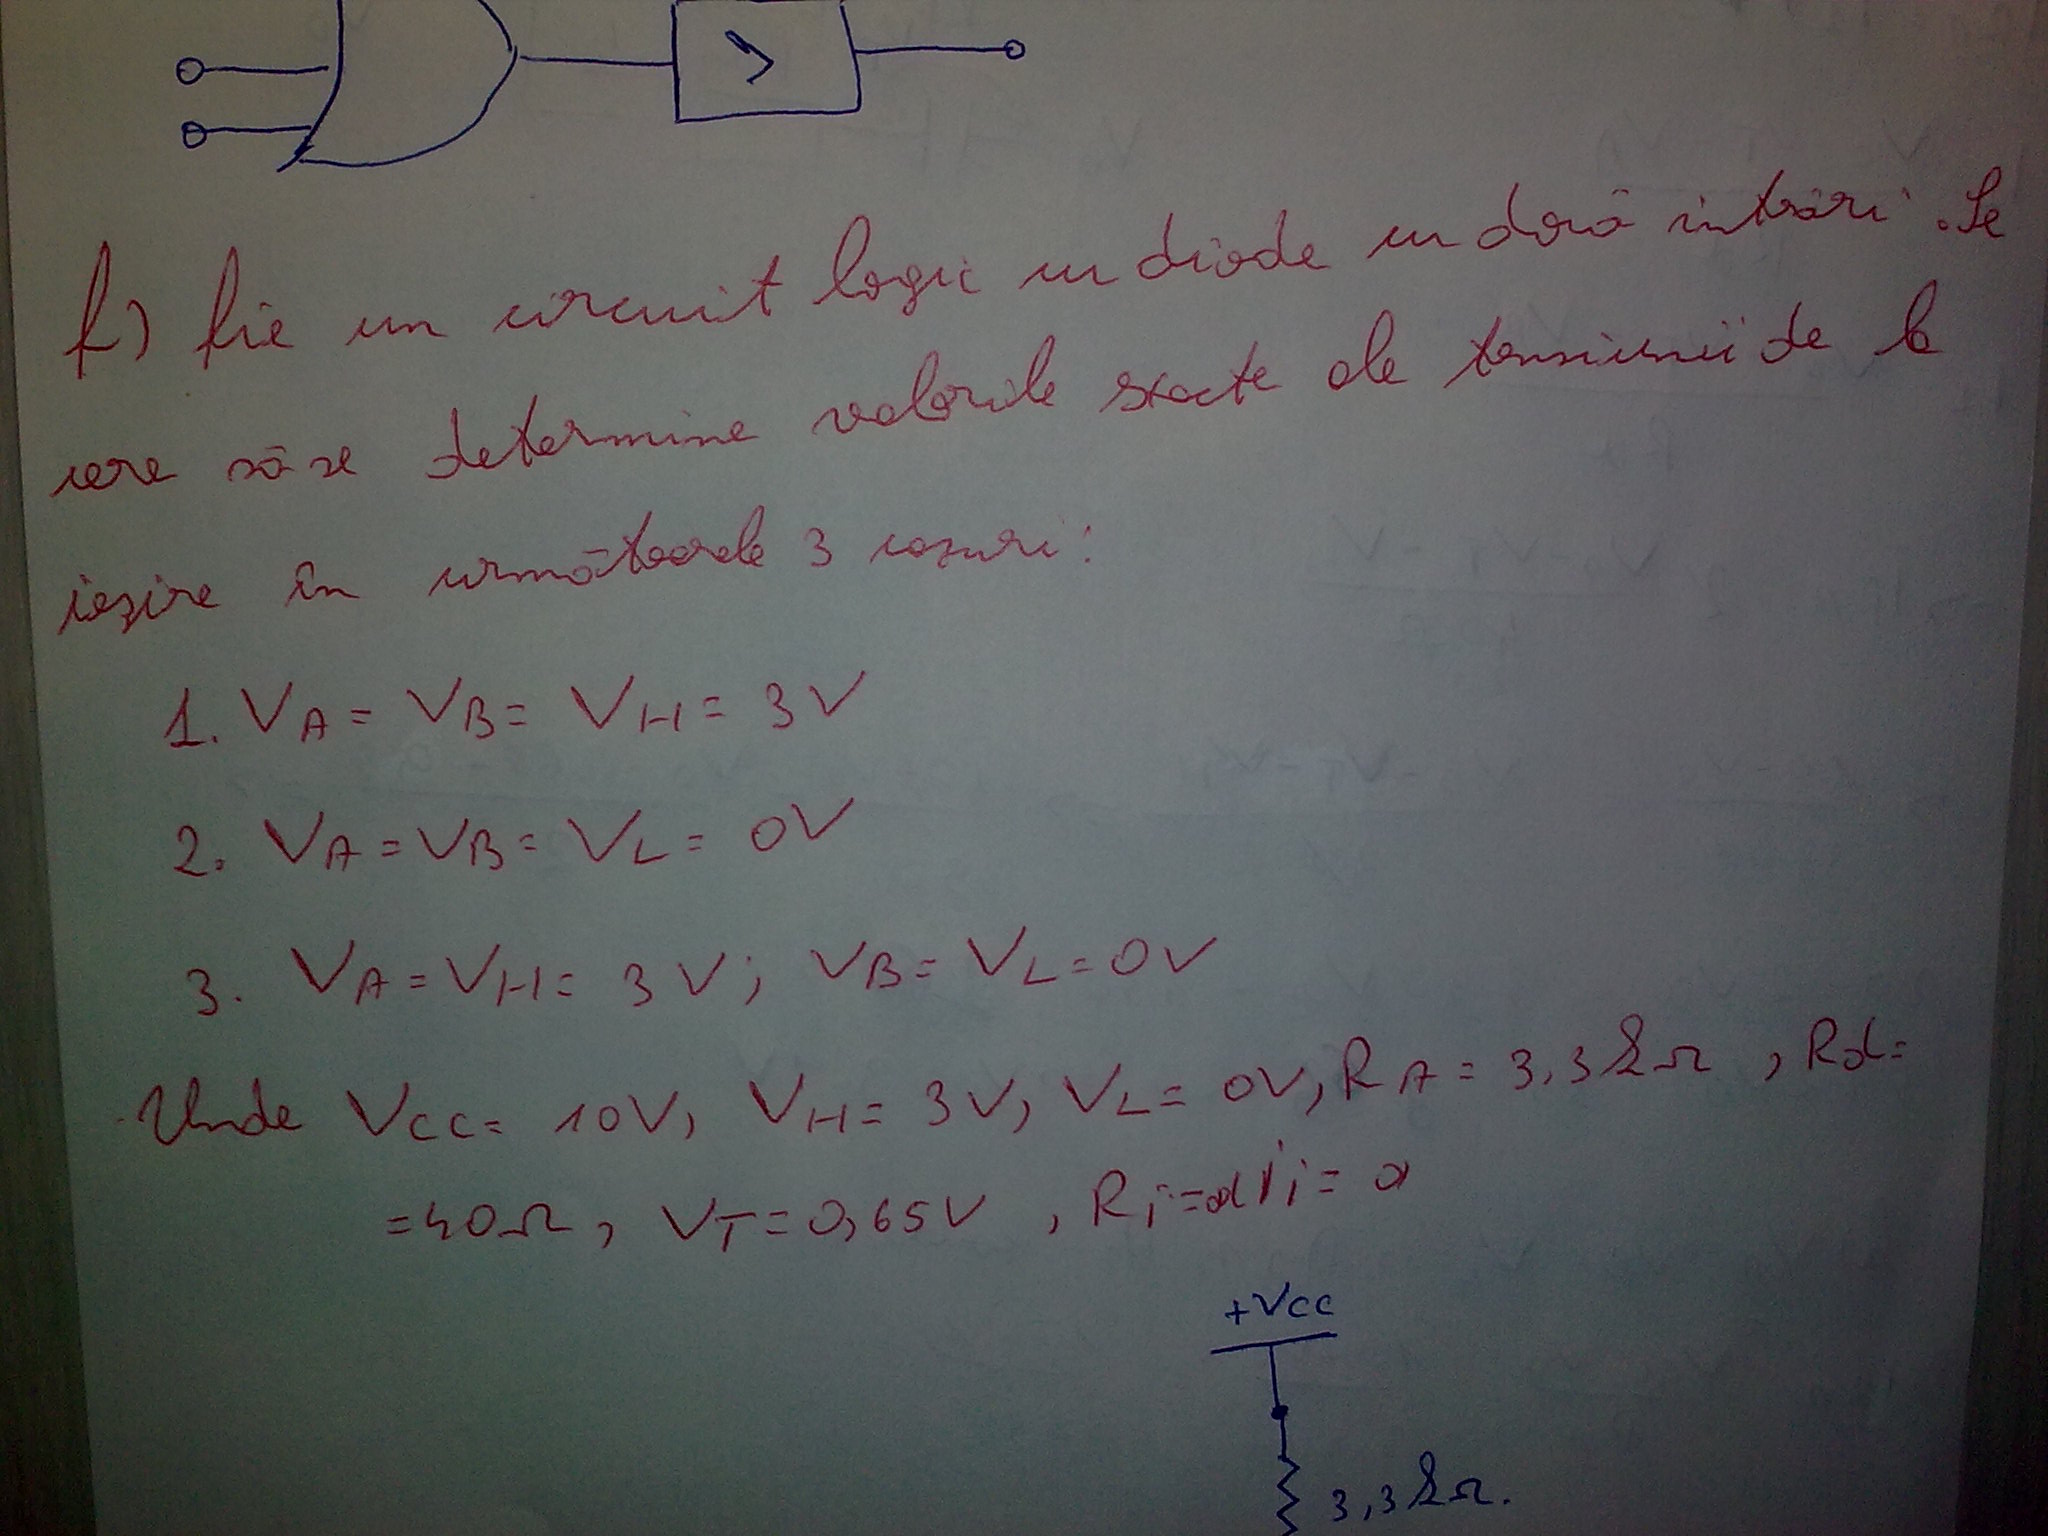 >
f) fie un circuit logic cu diode cu două intrări. Se
cere să se determine valorile exacte ale tensiunii de la
ieşire în următoarele 3 cazuri:
1. VA = VB = VH = 3V
2. VA = VB = VL = 0V
3. VA = VH = 3V; VB = VL = 0V
Unde VCC = 10V, VH = 3V, VL = 0V, RA = 3,3kΩ, Rd =
= 40Ω, VT = 0,65V, Ri =
+VCC
3,3kΩ.